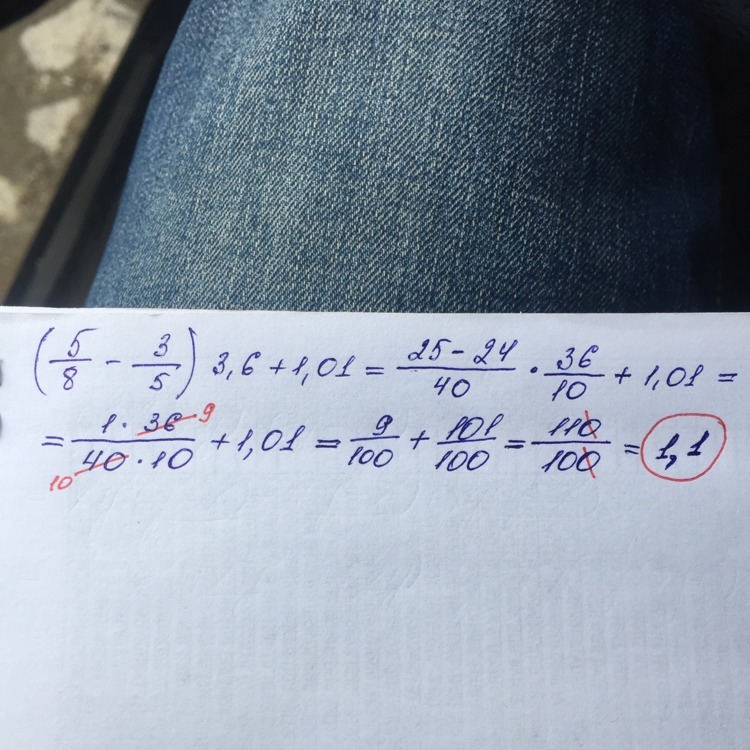 (5/8 - 3/5) 3,6 + 1,01 = 25 - 24/40 · 36/10 + 1,01 =
= 1 · 36 9/40 · 10 10 + 1,01 = 9/100 + 101/100 = 110/100 = 1,1